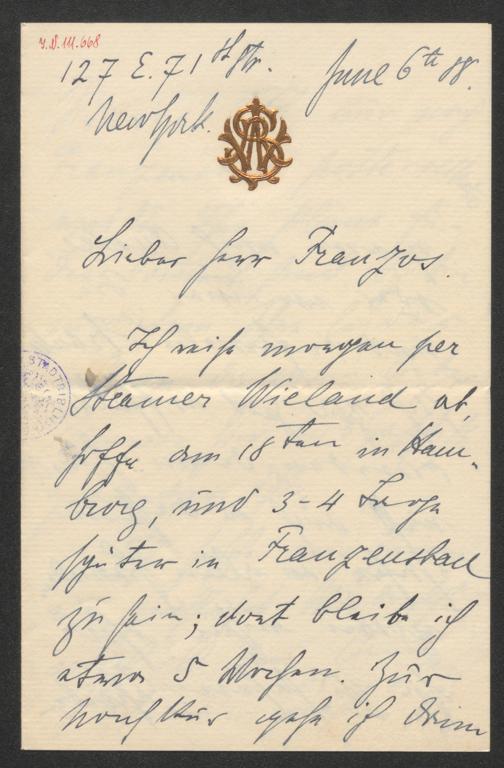 J.N. 111.668
127 E. 71th Str. June 6th 88.
New York.
Lieber Herr Franzos.
Ich reise morgen per
Steamer Wieland ab,
hoffe am 18ten in Ham-
burg, und 3-4 Tage
später in Franzensbad
zu sein; dort bleibe ich
etwa 5 Wochen. Zur
Nachkur gehe ich dann